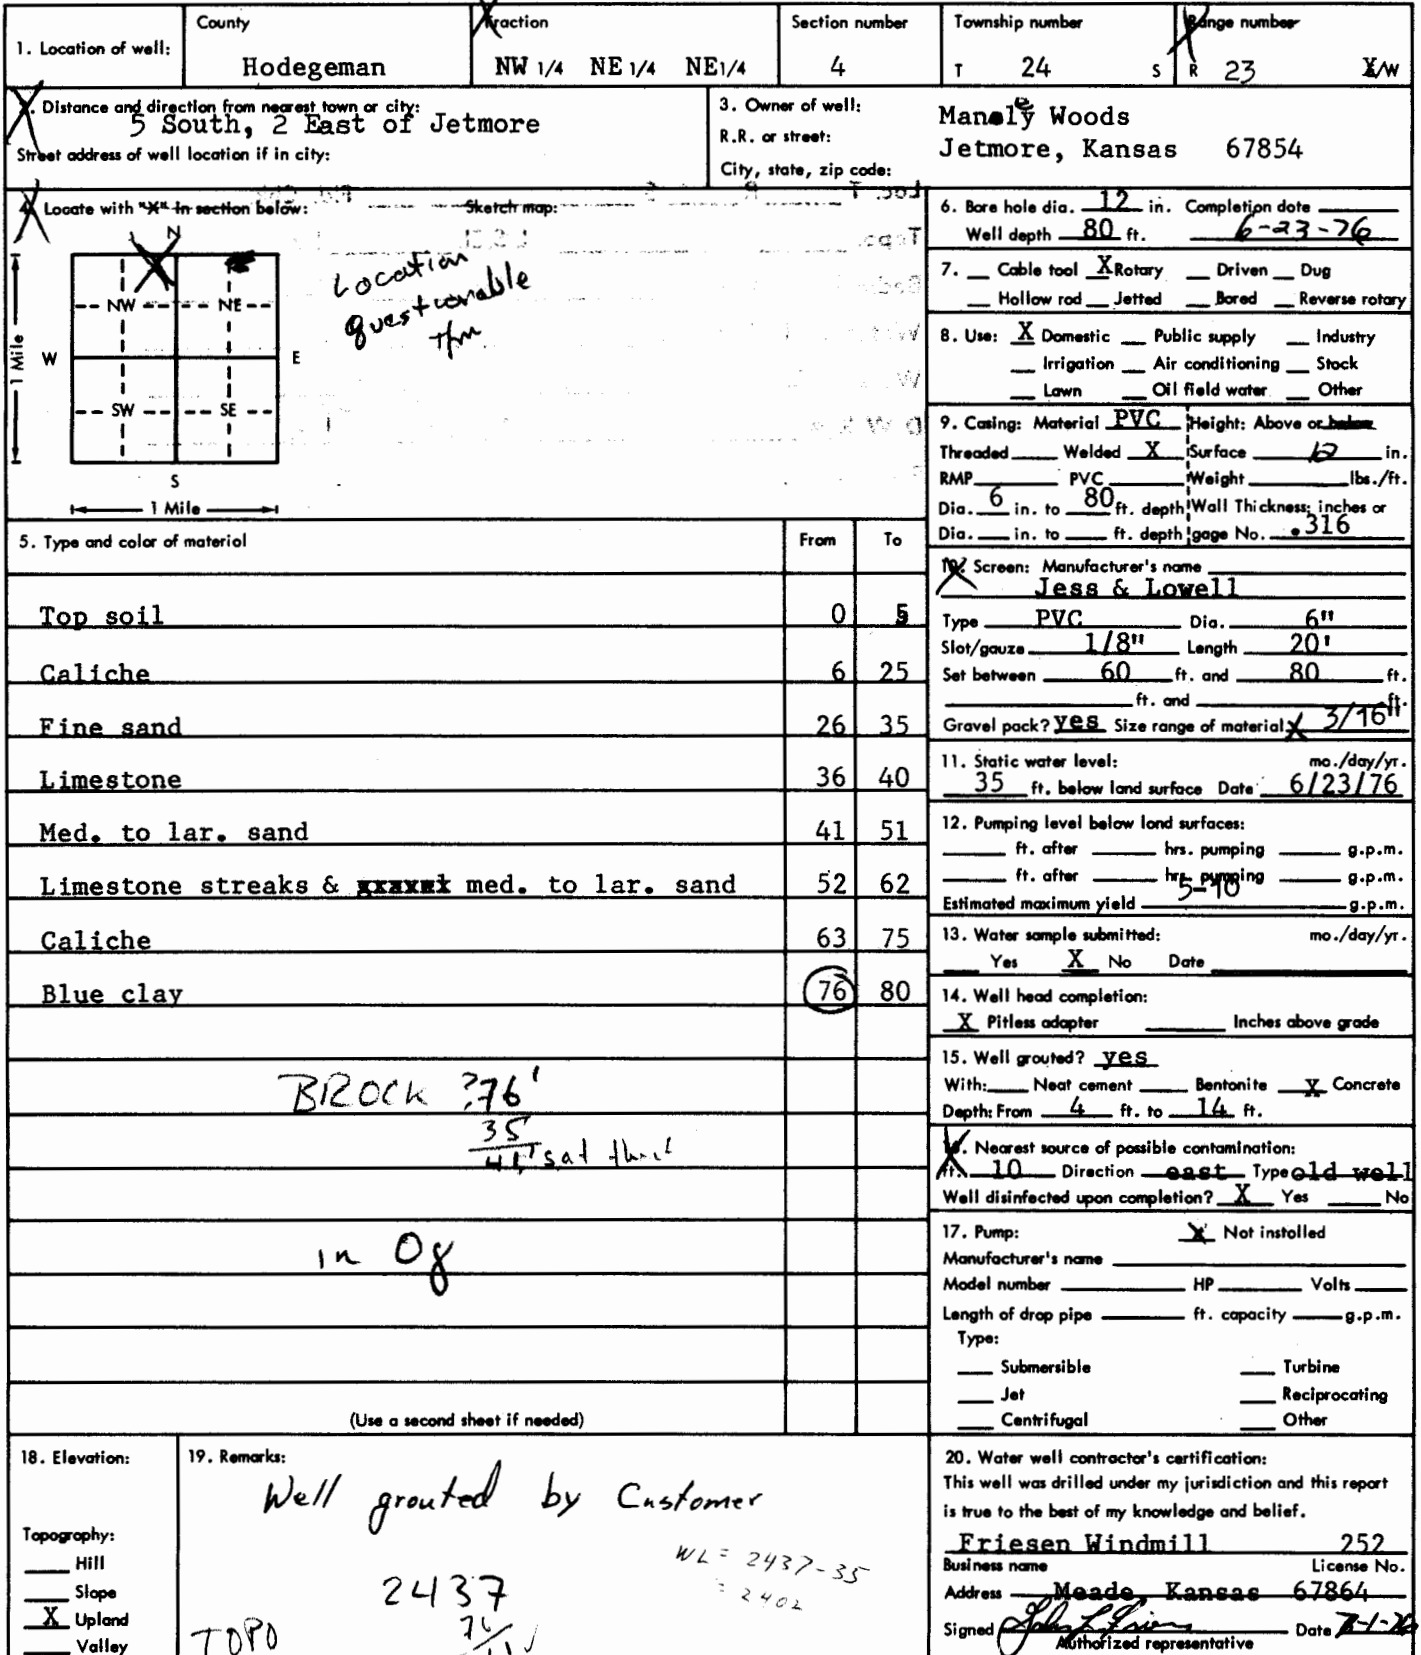 County
Fraction
Section number
Township number
Range number
1. Location of well:
Hodegeman
NW 1/4 NE 1/4 NE1/4
4
T 24 S
R 23 E/W
2. Distance and direction from nearest town or city:
5 South, 2 East of Jetmore
Street address of well location if in city:
3. Owner of well:
R.R. or street:
City, state, zip code:
Manely Woods
Jetmore, Kansas 67854
4. Locate with "X" in section below:
Sketch map:
N
NW NE
W E
SW SE
S
1 Mile
1 Mile
Location
questionable
6. Bore hole dia. 12 in. Completion date
Well depth 80 ft. 6-23-76
7. Cable tool X Rotary Driven Dug
Hollow rod Jetted Bored Reverse rotary
8. Use: X Domestic Public supply Industry
Irrigation Air conditioning Stock
Lawn Oil field water Other
9. Casing: Material PVC Height: Above or below
Threaded Welded X Surface 12 in.
RMP PVC Weight lbs./ft.
Dia. 6 in. to 80 ft. depth Wall Thickness: inches or
Dia. in. to ft. depth gage No. .316
5. Type and color of material From To
Top soil 0 5
Caliche 6 25
Fine sand 26 35
Limestone 36 40
Med. to lar. sand 41 51
Limestone streaks & med. to lar. sand 52 62
Caliche 63 75
Blue clay 76 80
BROCK ?76'
35
41' sat thick
in Og
(Use a second sheet if needed)
10. Screen: Manufacturer's name
Jess & Lowell
Type PVC Dia. 6"
Slot/gauze 1/8" Length 20'
Set between 60 ft. and 80 ft.
ft. and ft.
Gravel pack? yes Size range of material 3/16"
11. Static water level: mo./day/yr.
35 ft. below land surface Date 6/23/76
12. Pumping level below land surfaces:
ft. after hrs. pumping g.p.m.
ft. after hrs. pumping g.p.m.
Estimated maximum yield 5-10 g.p.m.
13. Water sample submitted: mo./day/yr.
Yes X No Date
14. Well head completion:
X Pitless adapter Inches above grade
15. Well grouted? yes
With: Neat cement Bentonite X Concrete
Depth: From 4 ft. to 14 ft.
16. Nearest source of possible contamination:
ft. 10 Direction east Type old well
Well disinfected upon completion? X Yes No
17. Pump: X Not installed
Manufacturer's name
Model number HP Volts
Length of drop pipe ft. capacity g.p.m.
Type:
Submersible Turbine
Jet Reciprocating
Centrifugal Other
18. Elevation:
Topography:
Hill
Slope
X Upland
Valley
19. Remarks:
Well grouted by Customer
WL = 2437-35
= 2402
2437
76
TOPO
20. Water well contractor's certification:
This well was drilled under my jurisdiction and this report
is true to the best of my knowledge and belief.
Friesen Windmill 252
Business name License No.
Address Meade, Kansas 67864
Signed Date 7-1-76
Authorized representative